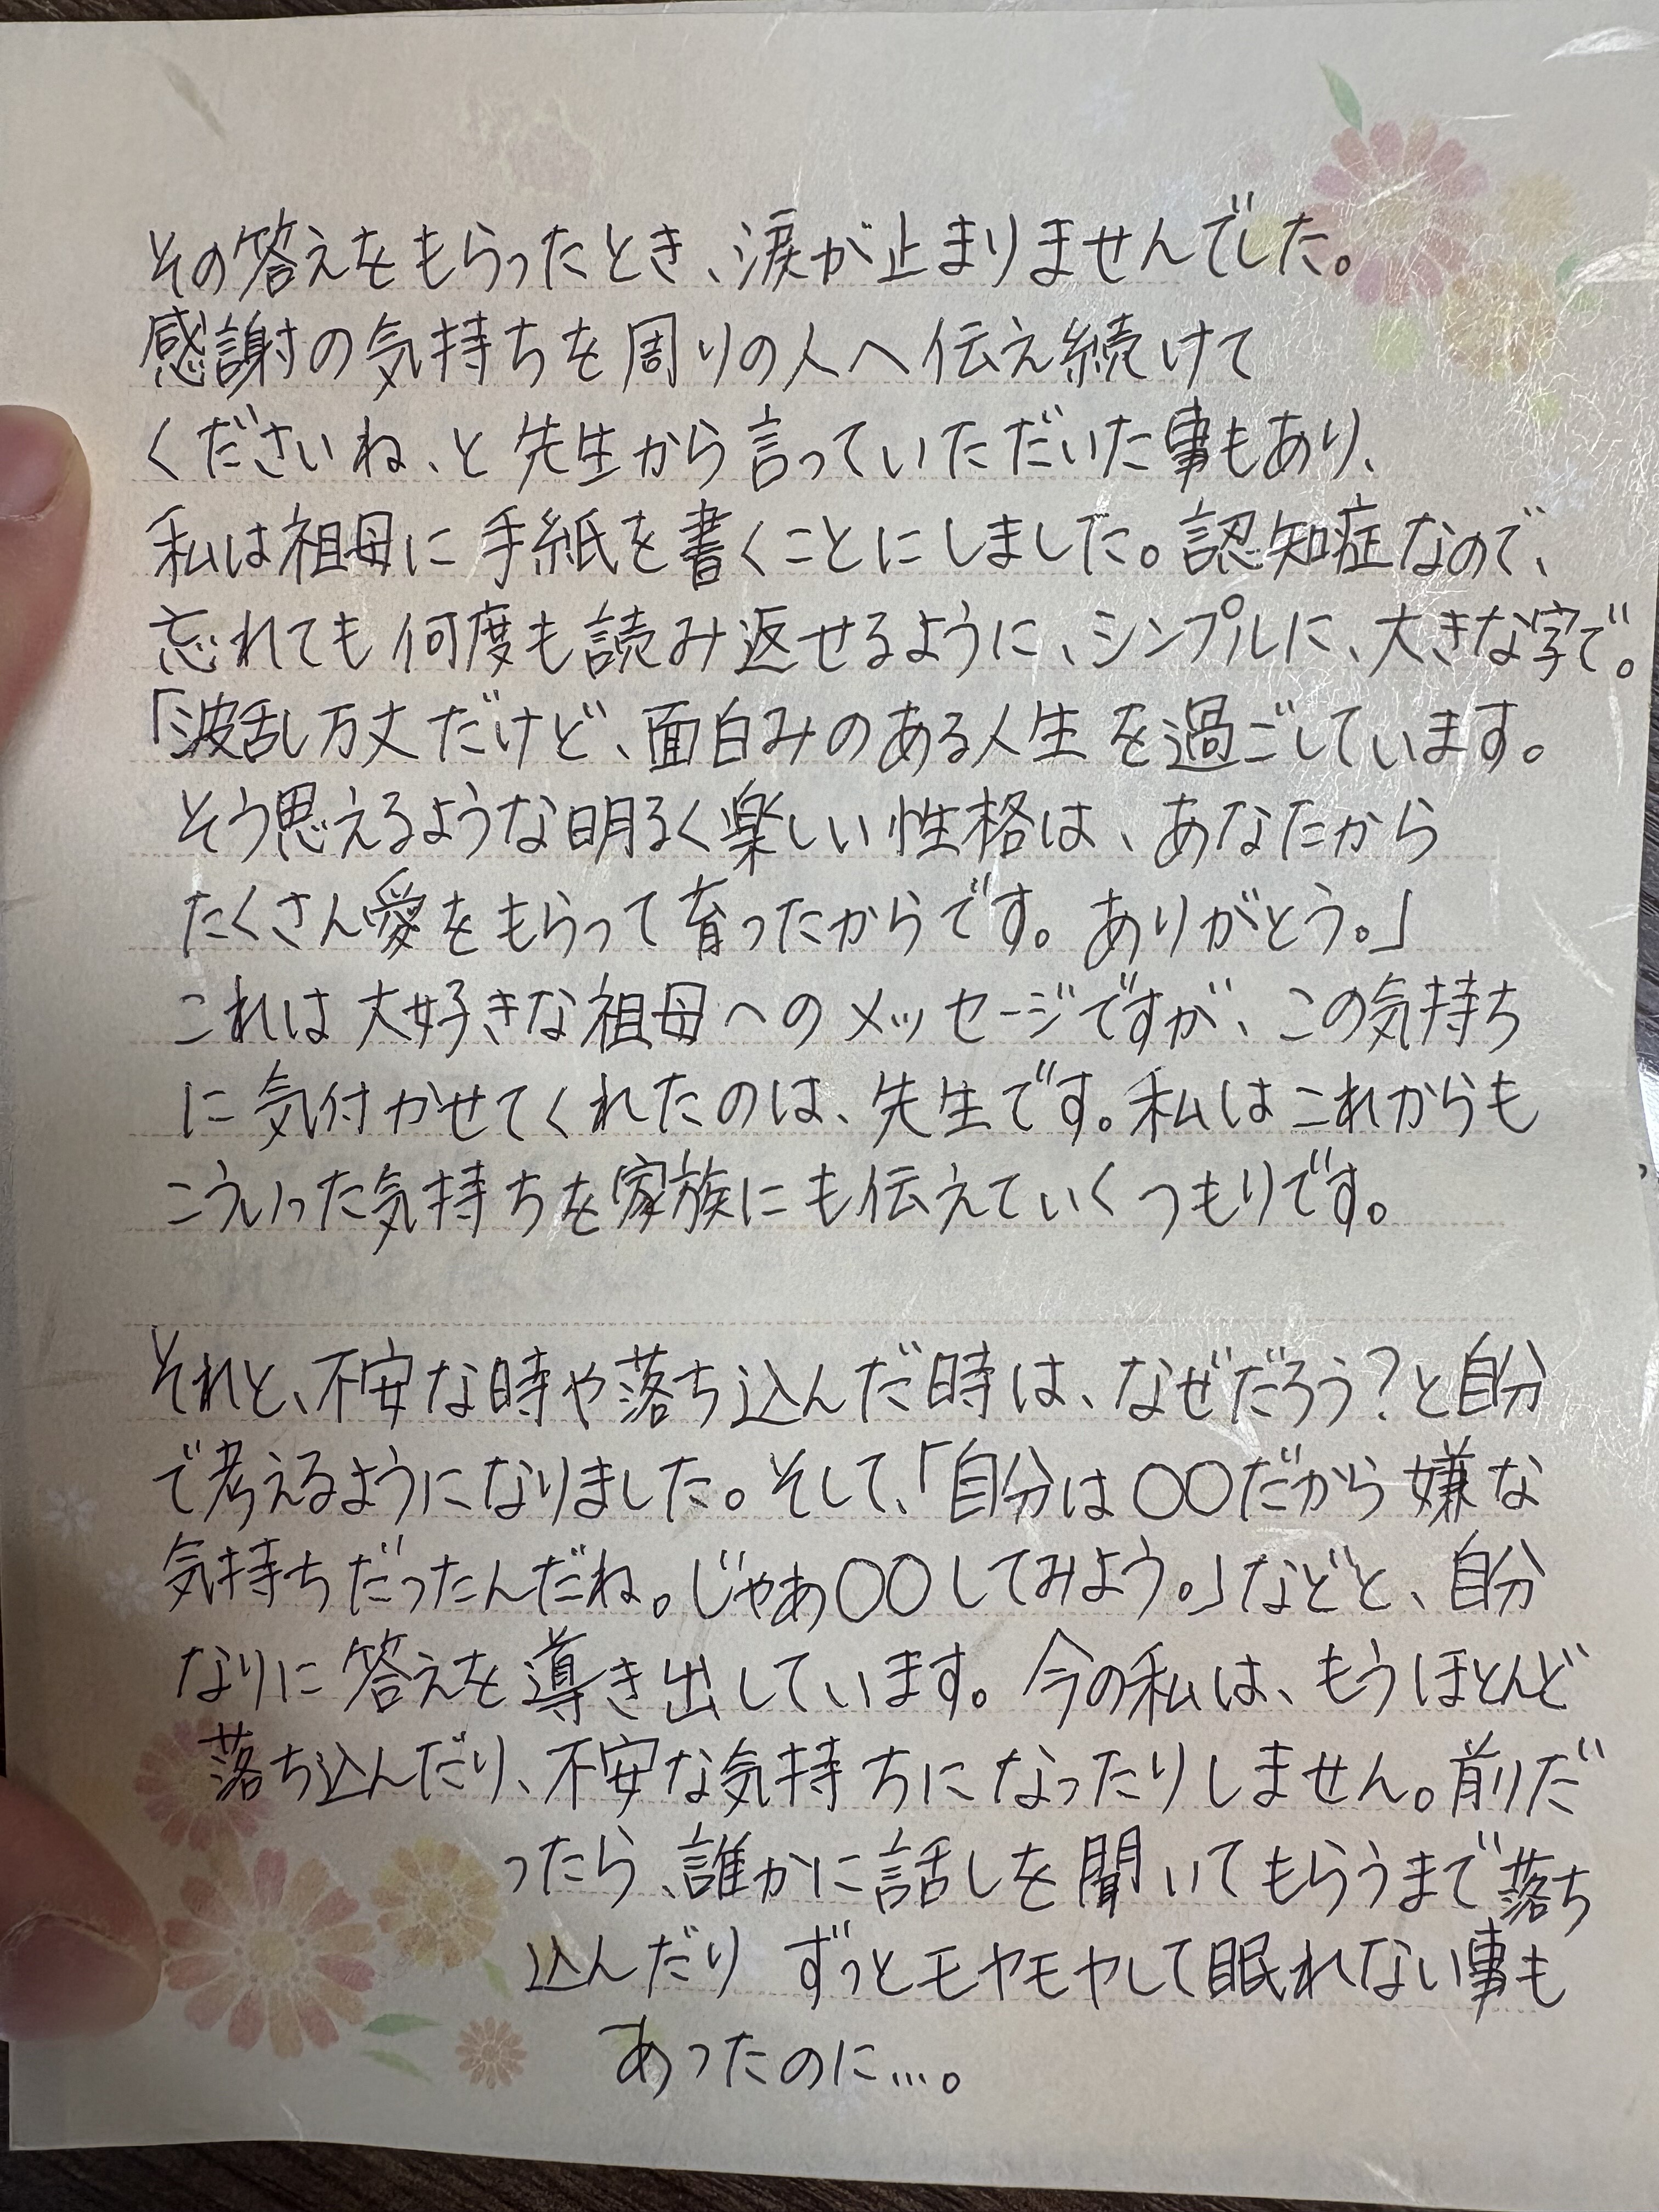 その答えをもらったとき、涙が止まりませんでした。
感謝の気持ちを周りの人へ伝え続けて
くださいね、と先生から言っていただいた事もあり、
私は祖母に手紙を書くことにしました。認知症なので、
忘れても何度も読み返せるように、シンプルに、大きな字で。
「波乱万丈だけど、面白みのある人生を過ごしています。
そう思えるような明るく楽しい性格は、あなたから
たくさん愛をもらって育ったからです。ありがとう。」
これは大好きな祖母へのメッセージですが、この気持ち
に気付かせてくれたのは、先生です。私はこれからも
こういった気持ちを家族にも伝えていくつもりです。
それと、不安な時や落ち込んだ時は、なぜだろう?と自分
で考えるようになりました。そして、「自分は〇〇だから嫌な
気持ちだったんだね。じゃあ〇〇してみよう。」などと、自分
なりに答えを導き出しています。今の私は、もうほとんど
落ち込んだり、不安な気持ちになったりしません。前だ
ったら、誰かに話しを聞いてもらうまで落ち
込んだり ずっとモヤモヤして眠れない事も
あったのに…。